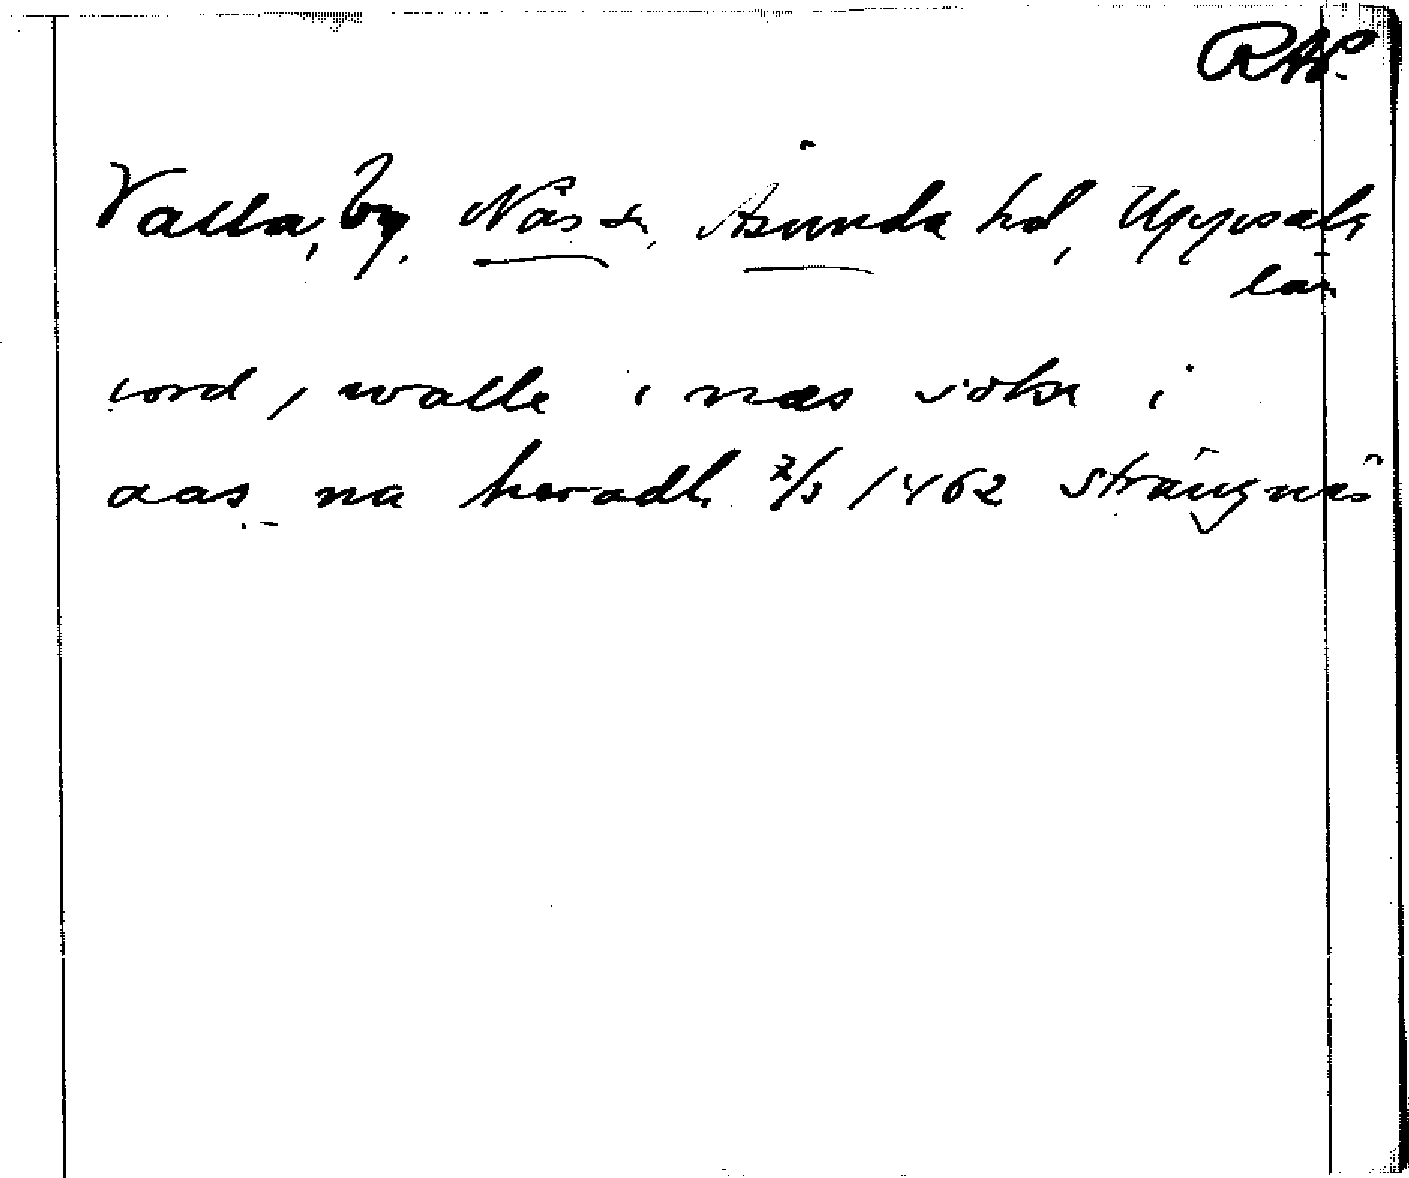 RAP.
Valla, by, Näs sn, Åsunda hd, Uppsala
län
iord, walle i næs sokn i
aas na heradh 3/3 1462 Strängnäs